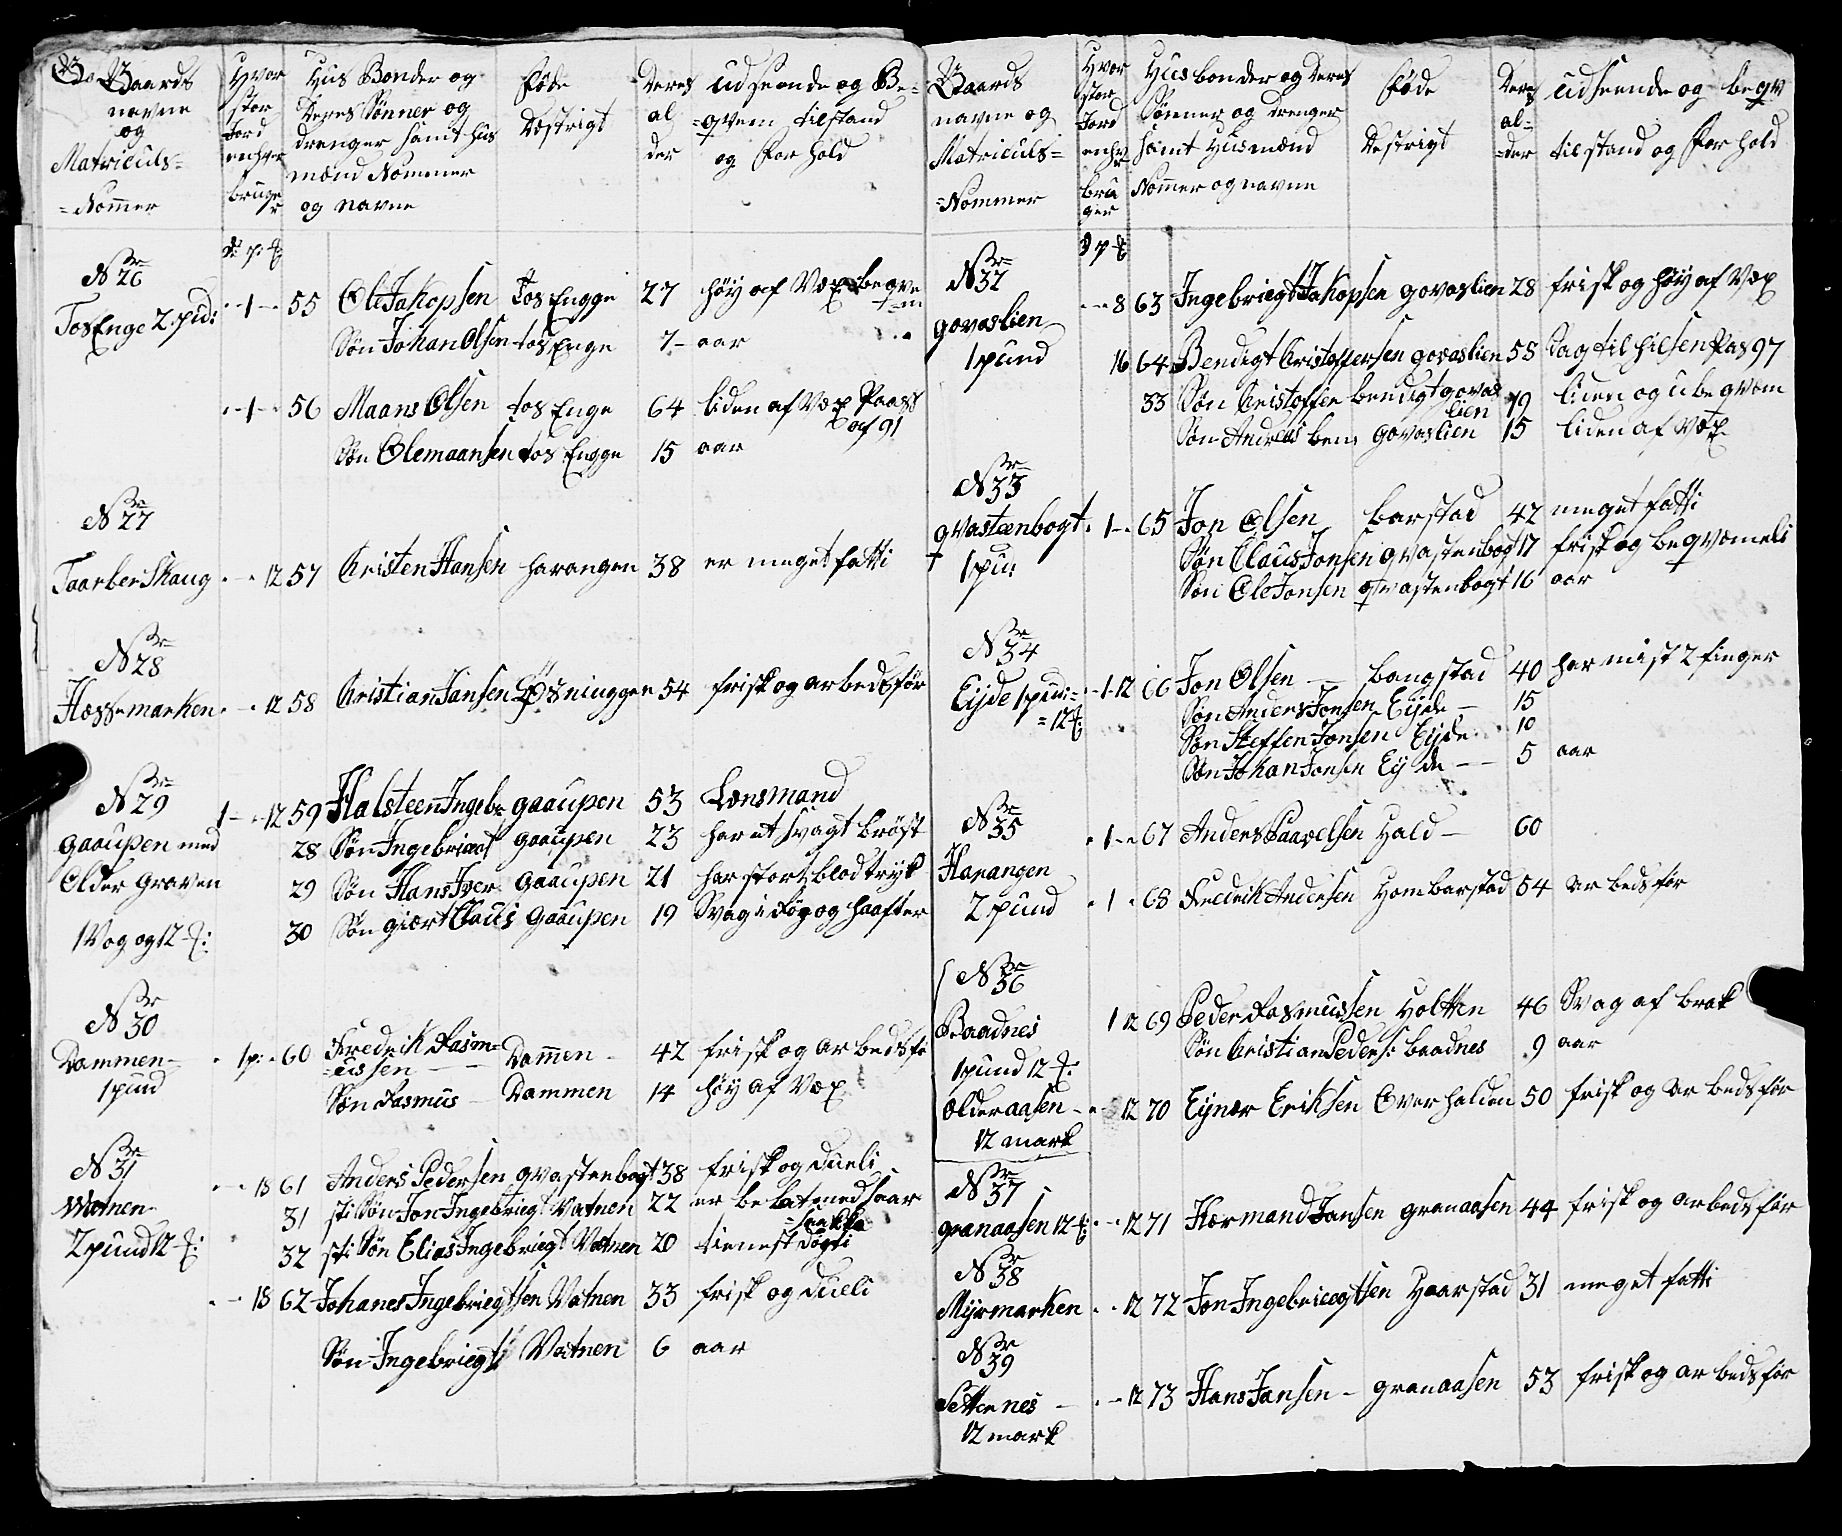 Gaards navne og Matriculs= =Nomer
Hvor stor Jord enhver bruger
Hus Bonder og Deres Sønner og drenger samt hus mænd Nommer og navne
føde Destrigt
Deres al der
udseende og Be= =qvem tilstand og for hold
No 26
Tos Enge 2 pid:
1 55 Ole Jakopsen Tos Engge 27 høy af Væx begvem
Søn Johan Olsen tos Enge 7 aar
1 56 Maans Olsen tos Enge 64 liden af Væx Paass af 91
Søn Ole maansen tos Engge 15 aar
No 27
Taarber Skaug 12 57 Christen Hansen harangen 38 er meget fatti
No 28
Hæss marken 12 58 Christian Jansen Løsninggen 54 frisk og arbedsför
No 29
gaaupen med Older Graven
1 Vog og 12
1 12 59 Halsteen Ingebr gaaupen 53 Lensmand
28 Søn Ingebrigt gaaupen 23 har et svagt bröst
29 Søn Hans Iver gaaupen 21 har stort blod tryk
30 Søn giært Claus Gaaupen 19 Svag i Røg og haafter
No 30
Dammen 1 pund
1 p: 60 Fredrik Rasm= =ussen Dammen 42 frisk og arbedsfö
Søn Rasmus Dammen 14 høy af Væx
No 31
Watnen 2 pund 12
18 61 Anders Pedersen qvastenbogt 38 frisk og dueli
31 sti Søn Jon Ingebrigt Vatnen 22 er be lat med saar
32 sti Søn Elias Ingebrigt Vatnen 20 tienest dögti
18 62 Johanes Ingebriegtsen Vatnen 33 frisk og dueli
Søn Ingebriegt Vatnen 6 aar
Gaards navne og Matriculs= =Nommer
Hvor stor Jord enhver bru ger
Hus bonder og Deres Sønner og drenger samt Husmænd Nomer og navne
føde Destrigt
Deres al= =der
udseende og beqv tilstand og for hold
No 32
govaslien 1 pund
8 63 Ingebriegt Jakopsen govaslien 28 frisk og høy af Væx
16 64 Bendigt Cristoffersen govaslien 58 Sag til hilsen Pas 97
33 Søn Cristoffer bendigt govas lien 19 liden og ubeqvem
Søn Andreas ben: govaslien 15 liden af Væx
No 33
qvasteenbogt 1 pu:
1 65 Jon Olsen barstad 42 meget fatti
Søn Claus Jonsen qvastenbogt 17 frisk og beqvemeli
Søn Ole Jonsen qvastenbogt 16 aar
No 34
Eijde 1 pund: =12
1 12 66 Jon Olsen bangstad 40 har mist 2 finger
Søn Anders Jonsen Eijde 15
Søn Steffen Jonsen Eijde 10
Søn Johan Jonsen Eijde 5 aar
No 35
Harangen 2 pund
1 67 Anders Paavelsen Hald 60
1 68 Fredrik Andersen Hombarstad 54 ar bedsför
No 36
Baadnes 1 pund 12
1 12 69 Peder Rasmussen Holten 46 Svag af brak
Søn Cristian Peders: baadnes 9 aar
olderaasen 12 mark
12 70 Eijner Eriksen Overhalden 50 frisk og ar bedsför
No 37
granaasen 12 12 71 Hermand Jansen granaasen 44 frisk og arbedsför
No 38
Mijrmarken 12 72 Jon Ingebriegtsen Haarstad 31 meget fatti
No 39
Settenes 12 mark
12 73 Hans Jansen granaasen 53 frisk og ar bedsför